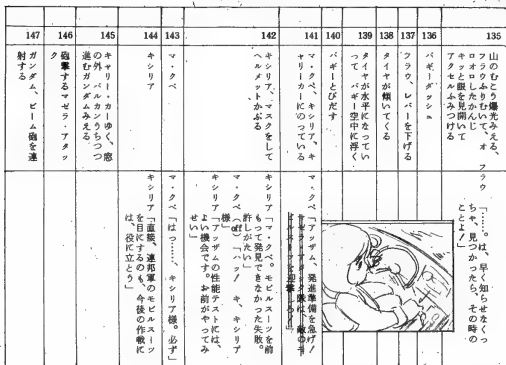 135
山のむこう爆光みえる、
フラウふりむいて、オ
ロオロしたかんじ
キッと眼を見開いて
アクセルふみつける
フラウ
「……。は、早く知らせなくっ
ちゃ、見つかったら、その時の
ことよ！」
136
バギーダッシュ
137
フラウ、レバーを下げる
138
タイヤが傾いてくる
139
タイヤが水平になってい
って バギー空中に浮く
140
バギーとびだす
141
マ・クベ、キシリア、キ
ャリーカーにのっている
マ・クベ「アッザム、発進準備を急げ！
マゼラ・アタック隊は、敵のモ
ビルスーツを迎撃しろ！」
142
キシリア、マスクをして
ヘルメットかぶる
キシリア「マ・クベ。モビルスーツを前
もって発見できなかった失敗。
許しがたい」
マ・クベ(off)「ハッ！ キ、キシリア
様」
キシリア「アッザムの性能テストには、
よい機会です。お前がやってみ
せい」
143
マ・クベ
マ・クベ「はっ……、キシリア様。必ず」
144
キシリア
キシリア「直接、連邦軍のモビルスーツ
を目にするのも、今後の作戦に
は、役に立とう」
145
キャリー・カーゆく、窓
の外、バルカンうちつつ
進むガンダムみえる
146
砲撃するマゼラ・アタッ
ク
147
ガンダム、ビーム砲を連
射する